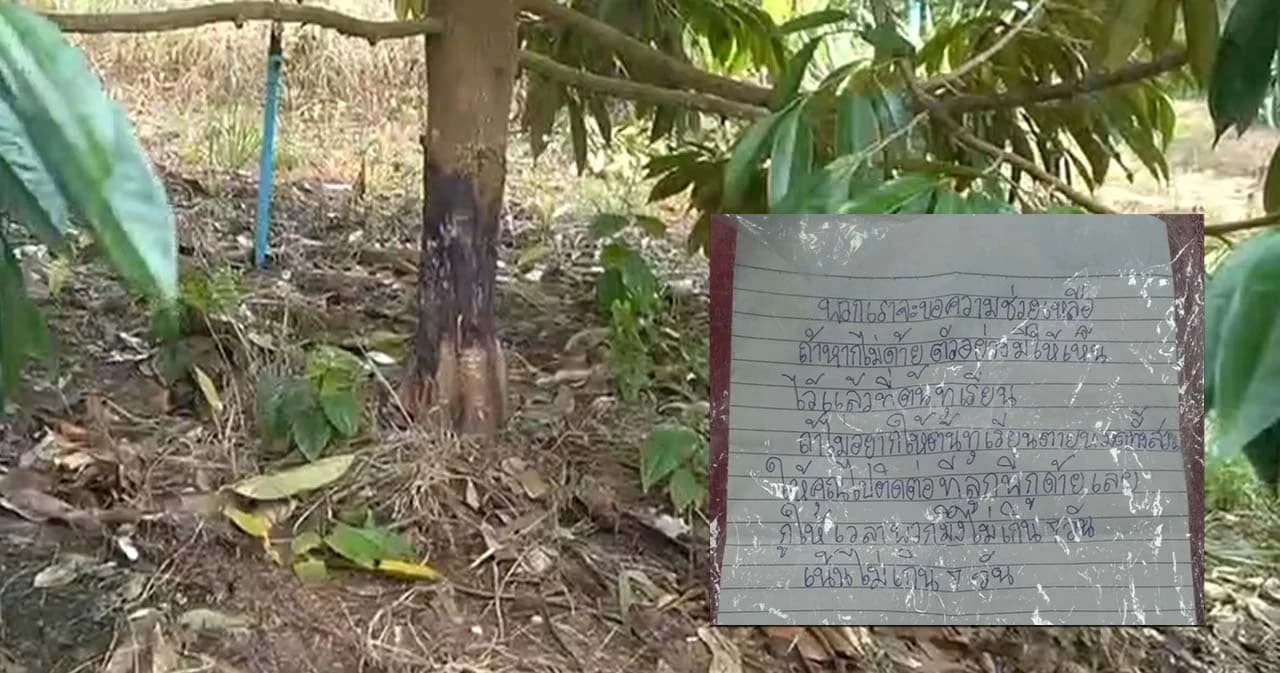 พวกเราจะขอความช่วยเหลือ
ถ้าหากไม่ด้าย ตัวอย่างมีให้เห็น
ไว้แล้วที่ต้นทุเรียน
ถ้าไม่อยากให้ต้นทุเรียนตายหมดทั้งสวน
ให้คุณไปติดต่อที่ลูกพี่กูด้ายเลย
กูให้เวลาพวกมึงไม่เกิน 7 วัน
เน้นไม่เกิน 7 วัน